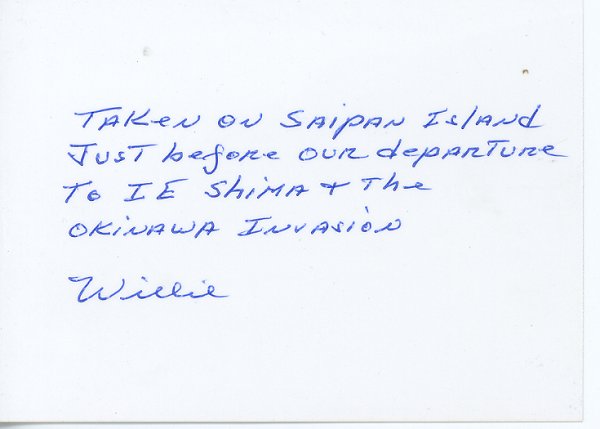 Taken on Saipan Island
Just before our departure
To IE Shima + The
Okinawa Invasion
Willie